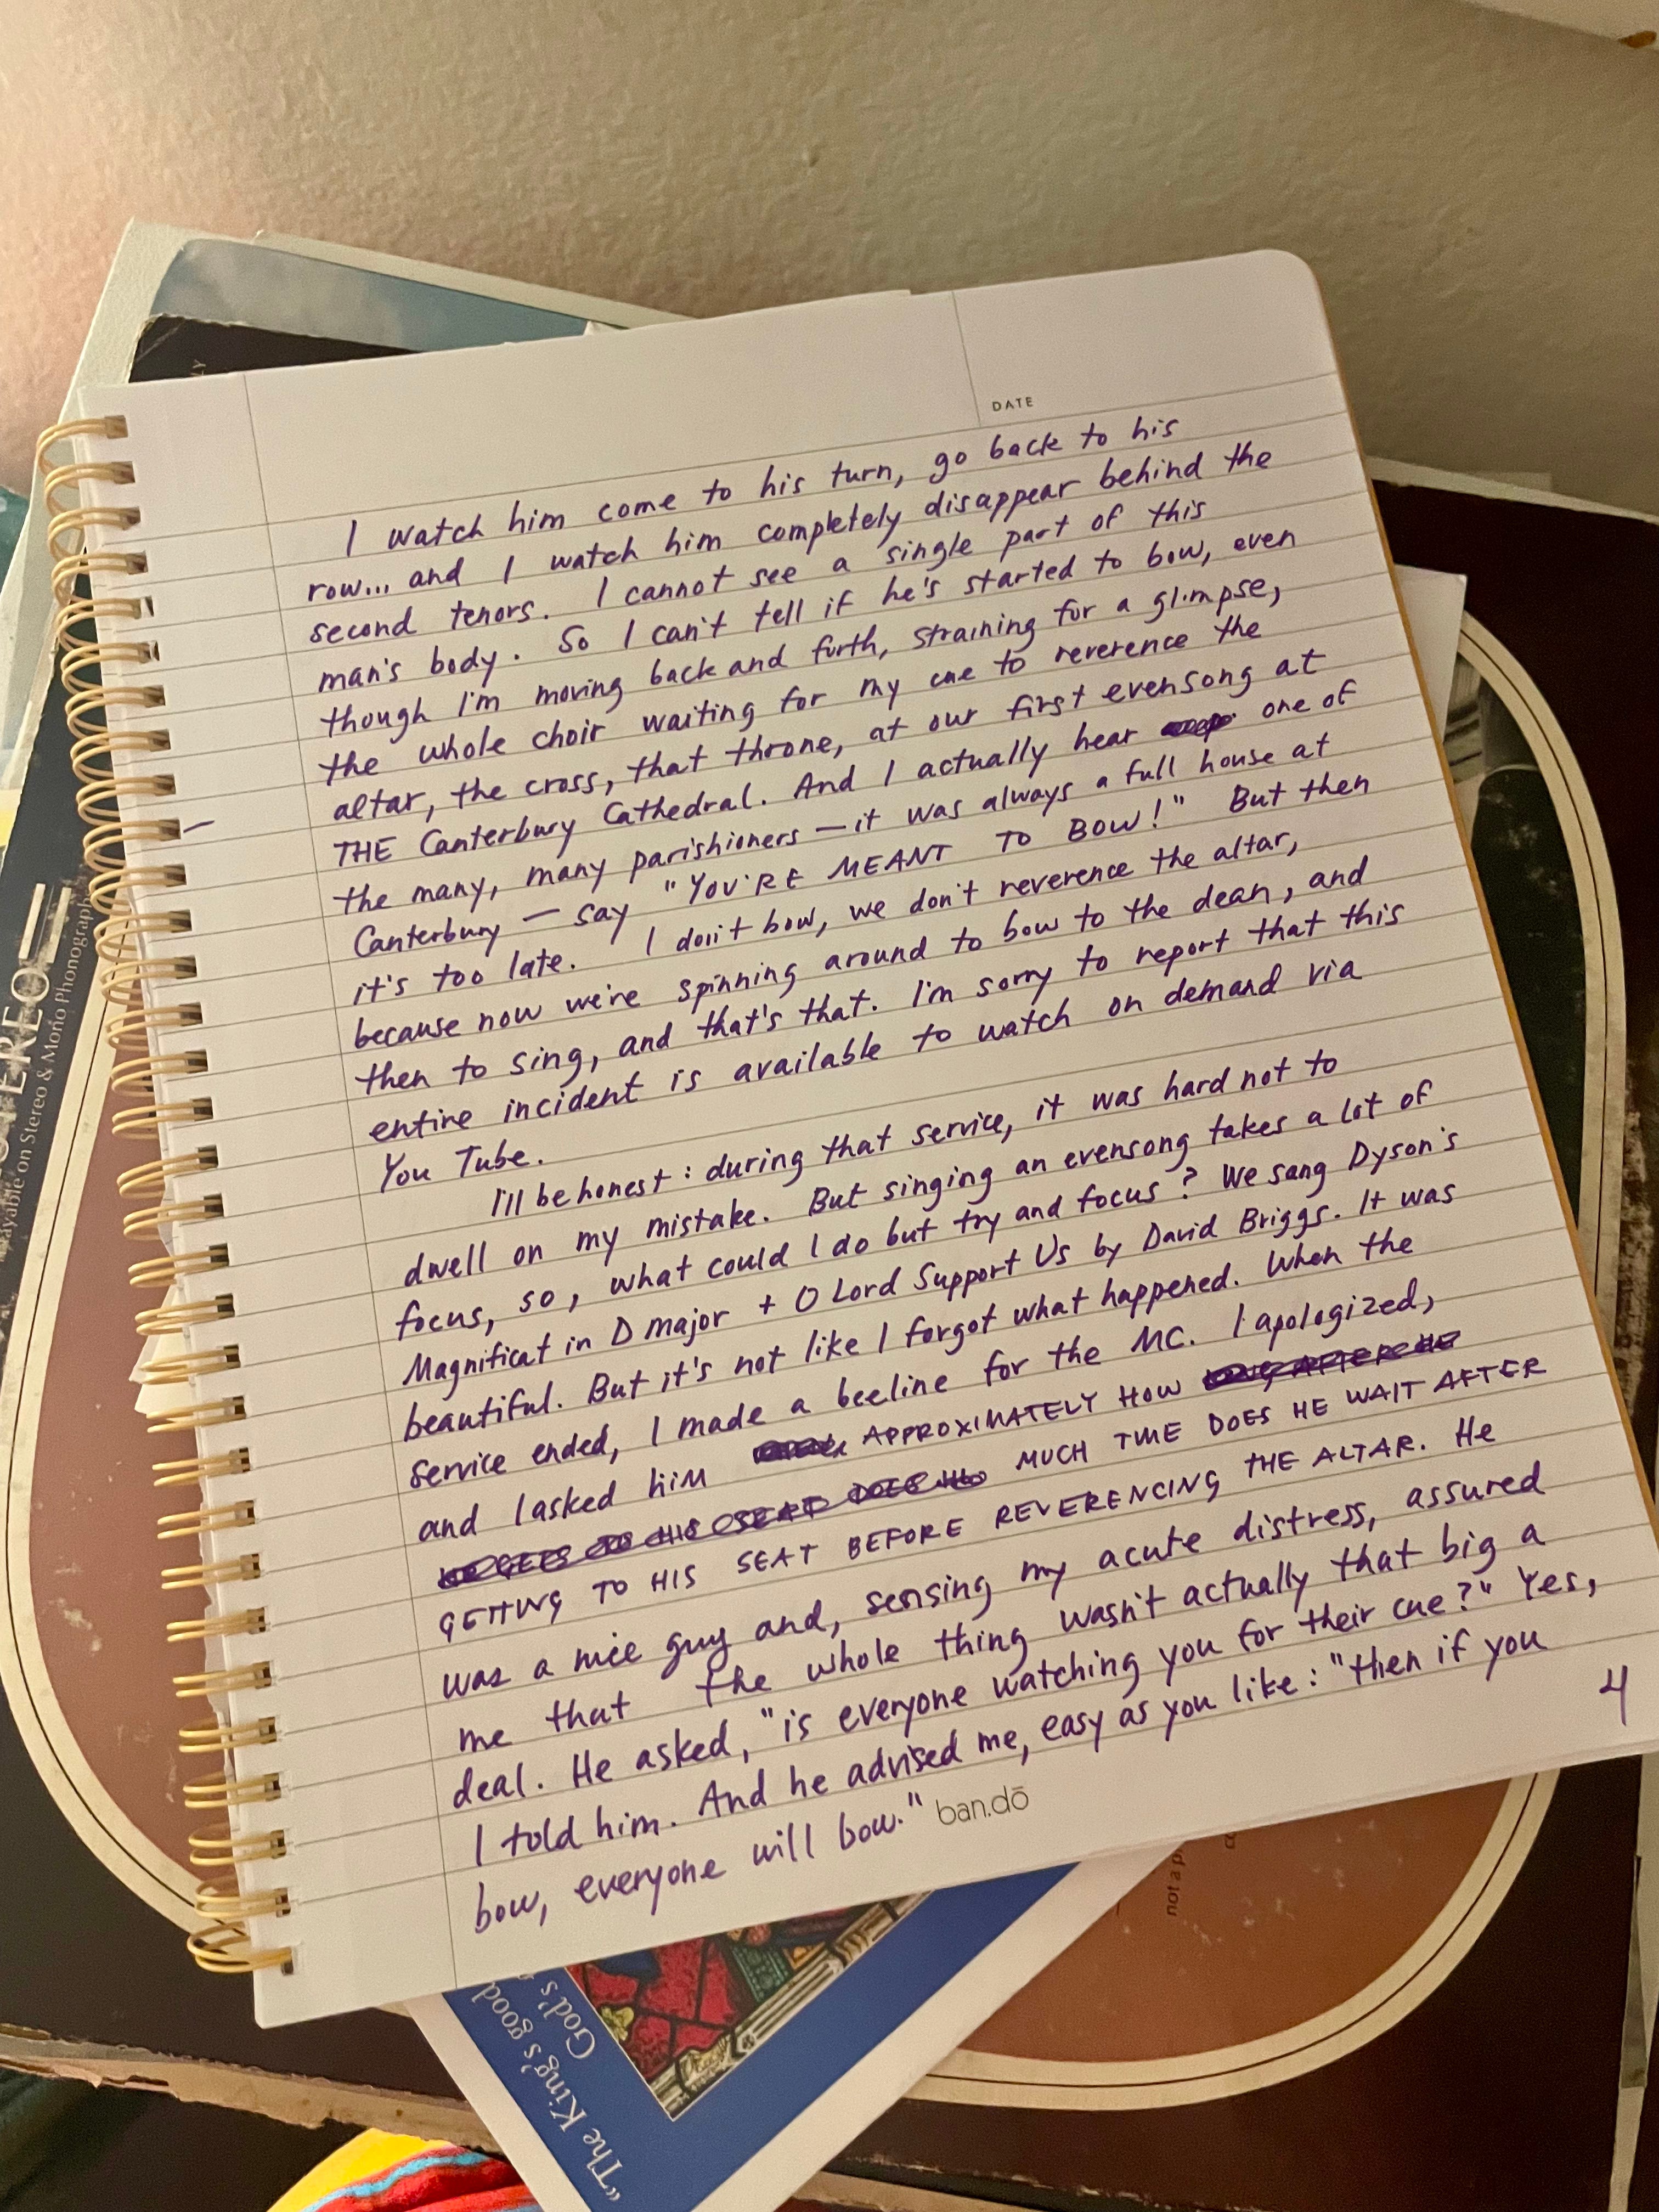 DATE
I watch him come to his turn, go back to his
row... and I watch him completely disappear behind the
second tenors. I cannot see a single part of this
man's body. So I can't tell if he's started to bow, even
though I'm moving back and forth, straining for a glimpse,
the whole choir waiting for my cue to reverence the
altar, the cross, that throne, at our first evensong at
THE Canterbury Cathedral. And I actually hear one of
the many, many parishioners — it was always a full house at
Canterbury — say "YOU'RE MEANT TO BOW!" But then
it's too late. I don't bow, we don't reverence the altar,
because now we're spinning around to bow to the dean, and
then to sing, and that's that. I'm sorry to report that this
entire incident is available to watch on demand via
You Tube.
I'll be honest: during that service, it was hard not to
dwell on my mistake. But singing an evensong takes a lot of
focus, so, what could I do but try and focus? We sang Dyson's
Magnificat in D major + O Lord Support Us by David Briggs. It was
beautiful. But it's not like I forgot what happened. When the
service ended, I made a beeline for the MC. I apologized,
and I asked him APPROXIMATELY HOW LONG AFTER HE
HE GETS TO HIS SEAT DOES HE MUCH TIME DOES HE WAIT AFTER
GETTING TO HIS SEAT BEFORE REVERENCING THE ALTAR. He
was a nice guy and, sensing my acute distress, assured
me that the whole thing wasn't actually that big a
deal. He asked, "is everyone watching you for their cue?" Yes,
I told him. And he advised me, easy as you like: "then if you
bow, everyone will bow."
4
ban.dō
STEREO
on Stereo & Mono Phonograph
"The King's good
God's
not a p